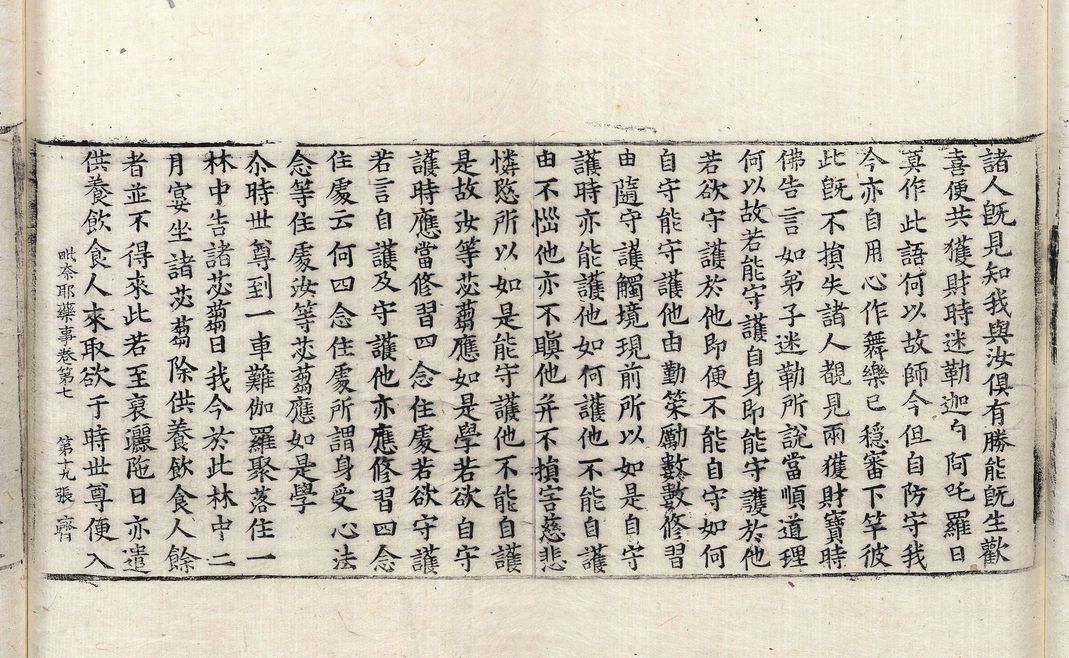 諸人旣見知我與汝俱有勝能旣生歡
喜便共獲財時迷勒迦勺阿吒羅曰
莫作此語何以故師今但自防守我
今亦自用心作舞樂已穩審下竿彼
此旣不損失諸人覩見兩獲財寶時
佛告言如弟子迷勒所說當順道理
何以故若能守護自身即能守護於他
若欲守護於他即便不能自守如何
自守能守護他由勤策勵數數修習
由隨守護觸境現前所以如是自守
護時亦能護他如何護他不能自護
由不惱他亦不瞋他并不損害慈悲
憐愍所以如是能守護他不能自護
是故汝等苾蒭應如是學若欲自守
護時應當修習四念住處若欲守護
若言自護及守護他亦應修習四念
住處云何四念住處所謂身受心法
念等住處汝等苾蒭應如是學
尒時世尊到一車難伽羅聚落住一
林中告諸苾蒭曰我今於此林中二
月宴坐諸苾蒭除供養飲食人餘
者並不得來此若至褒灑陁日亦遣
供養飲食人來取欲于時世尊便入
毗奈耶藥事卷第七 第十九張 齊